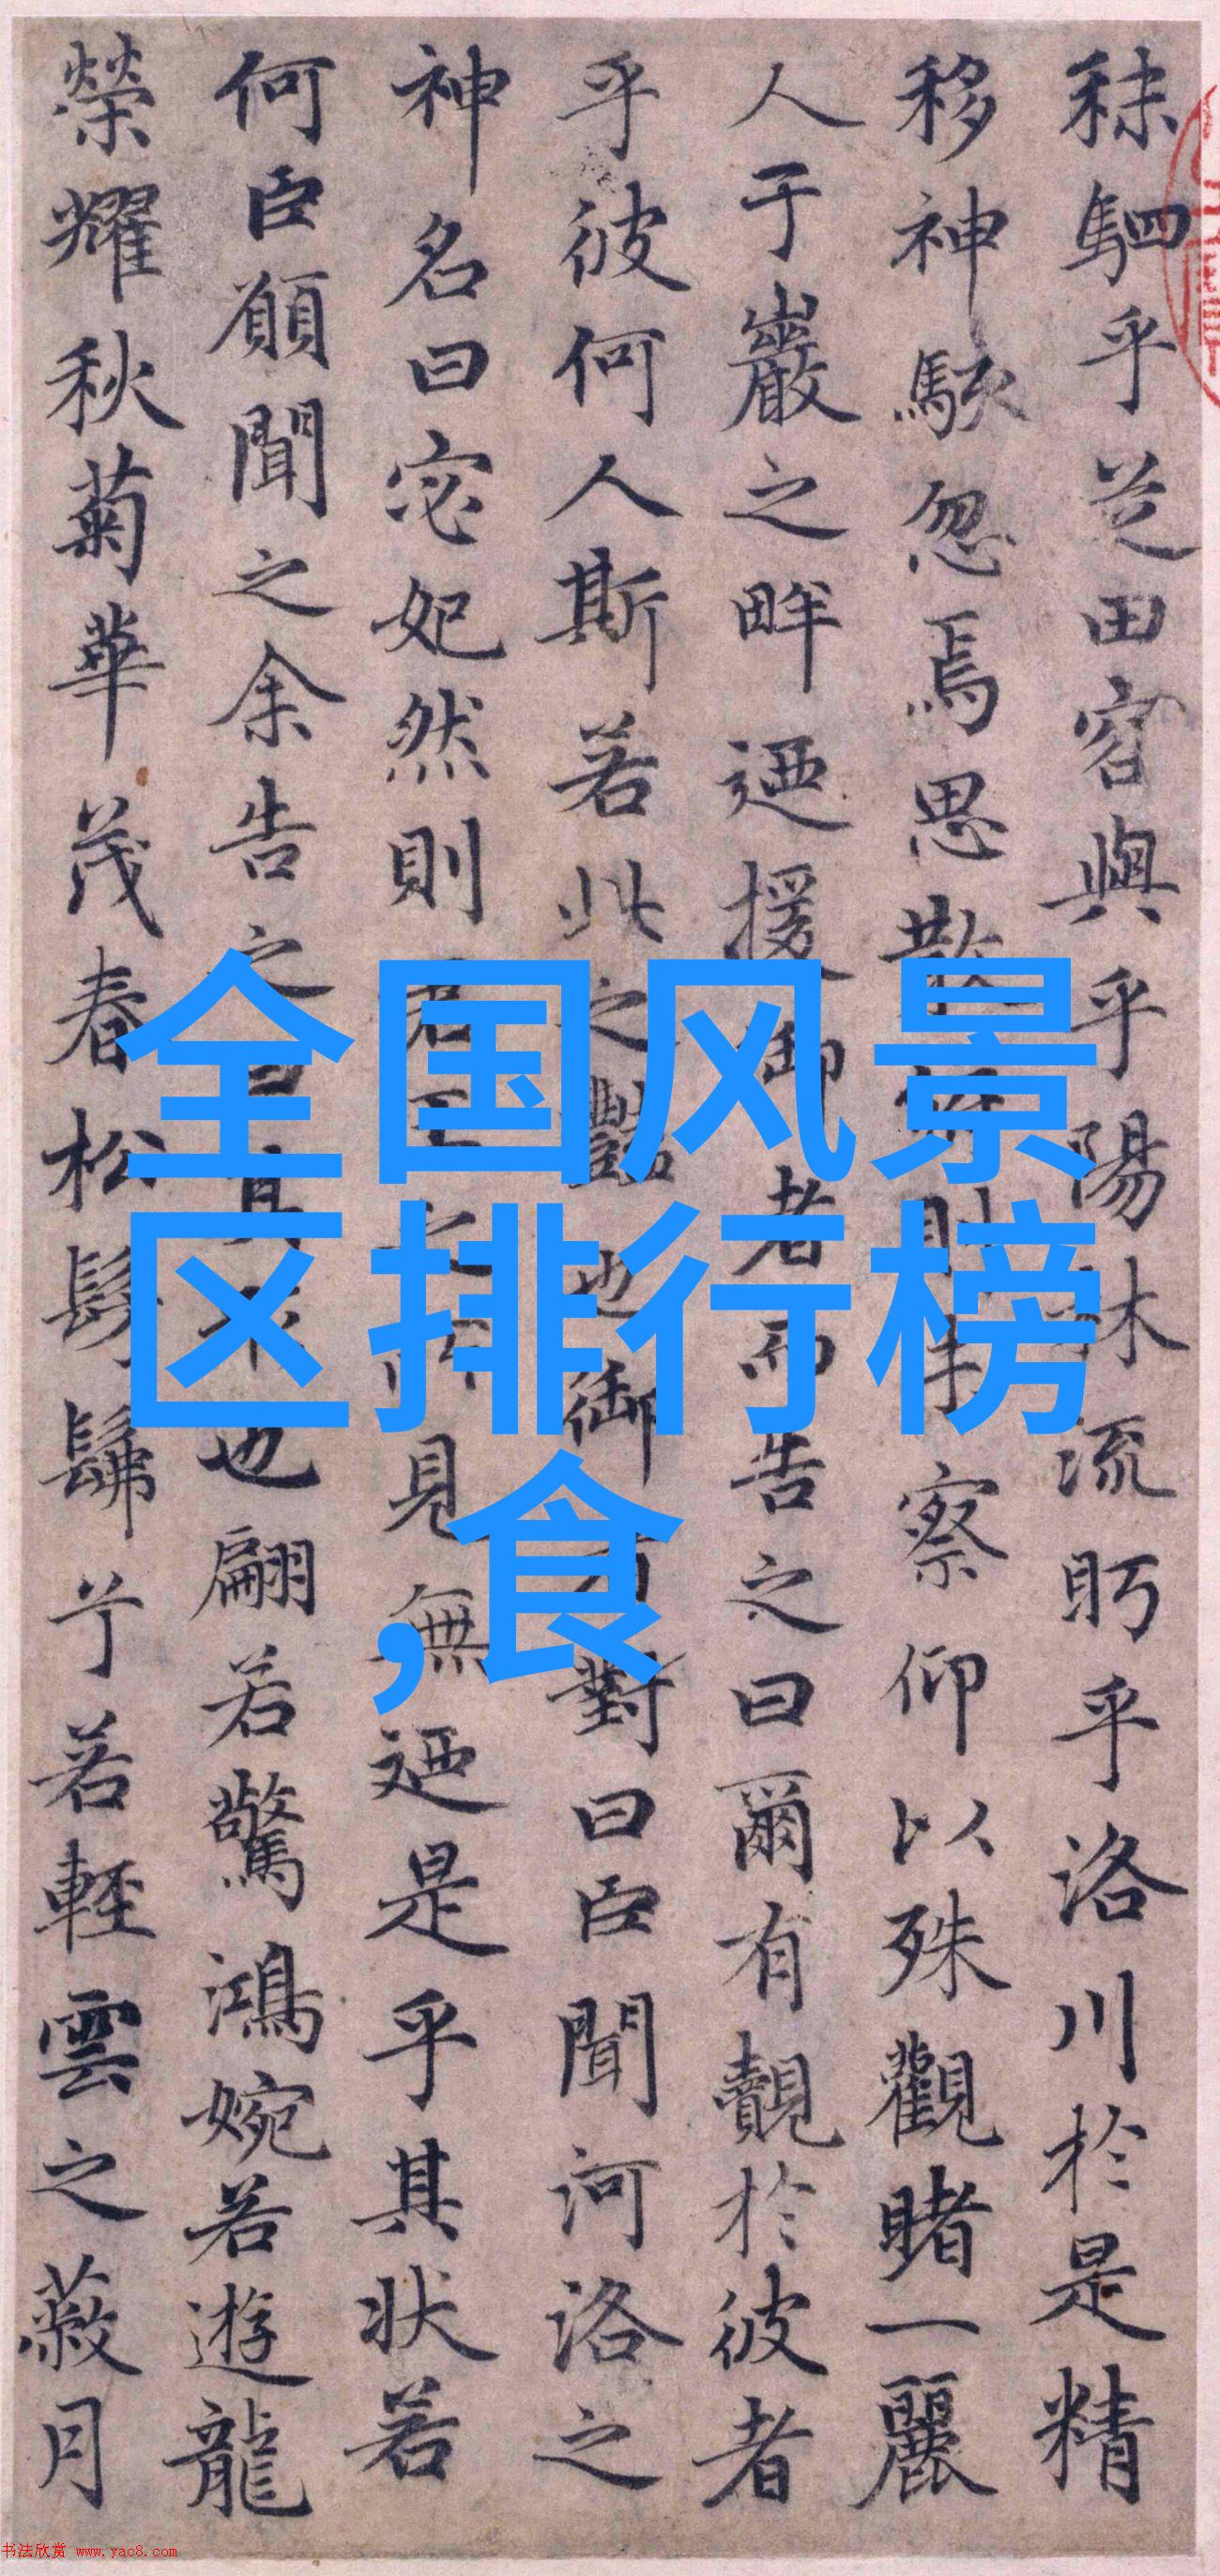 秣駟乎芝田容與乎陽林流眄乎洛川於是精
移神駭忽焉思散俯則未察仰以殊觀睹一麗
人于巖之畔迺援御者而告之曰爾有覿於彼者
乎彼何人斯若此之豔也御者對曰臣聞河洛之
神名曰宓妃然則君王之所見無迺是乎其狀若
何臣願聞之余告之曰其形也翩若驚鴻婉若遊龍
榮耀秋菊華茂春松髣髴兮若輕雲之蔽月
全国风景
区排行榜
,食
书法欣赏 www.yac8.com